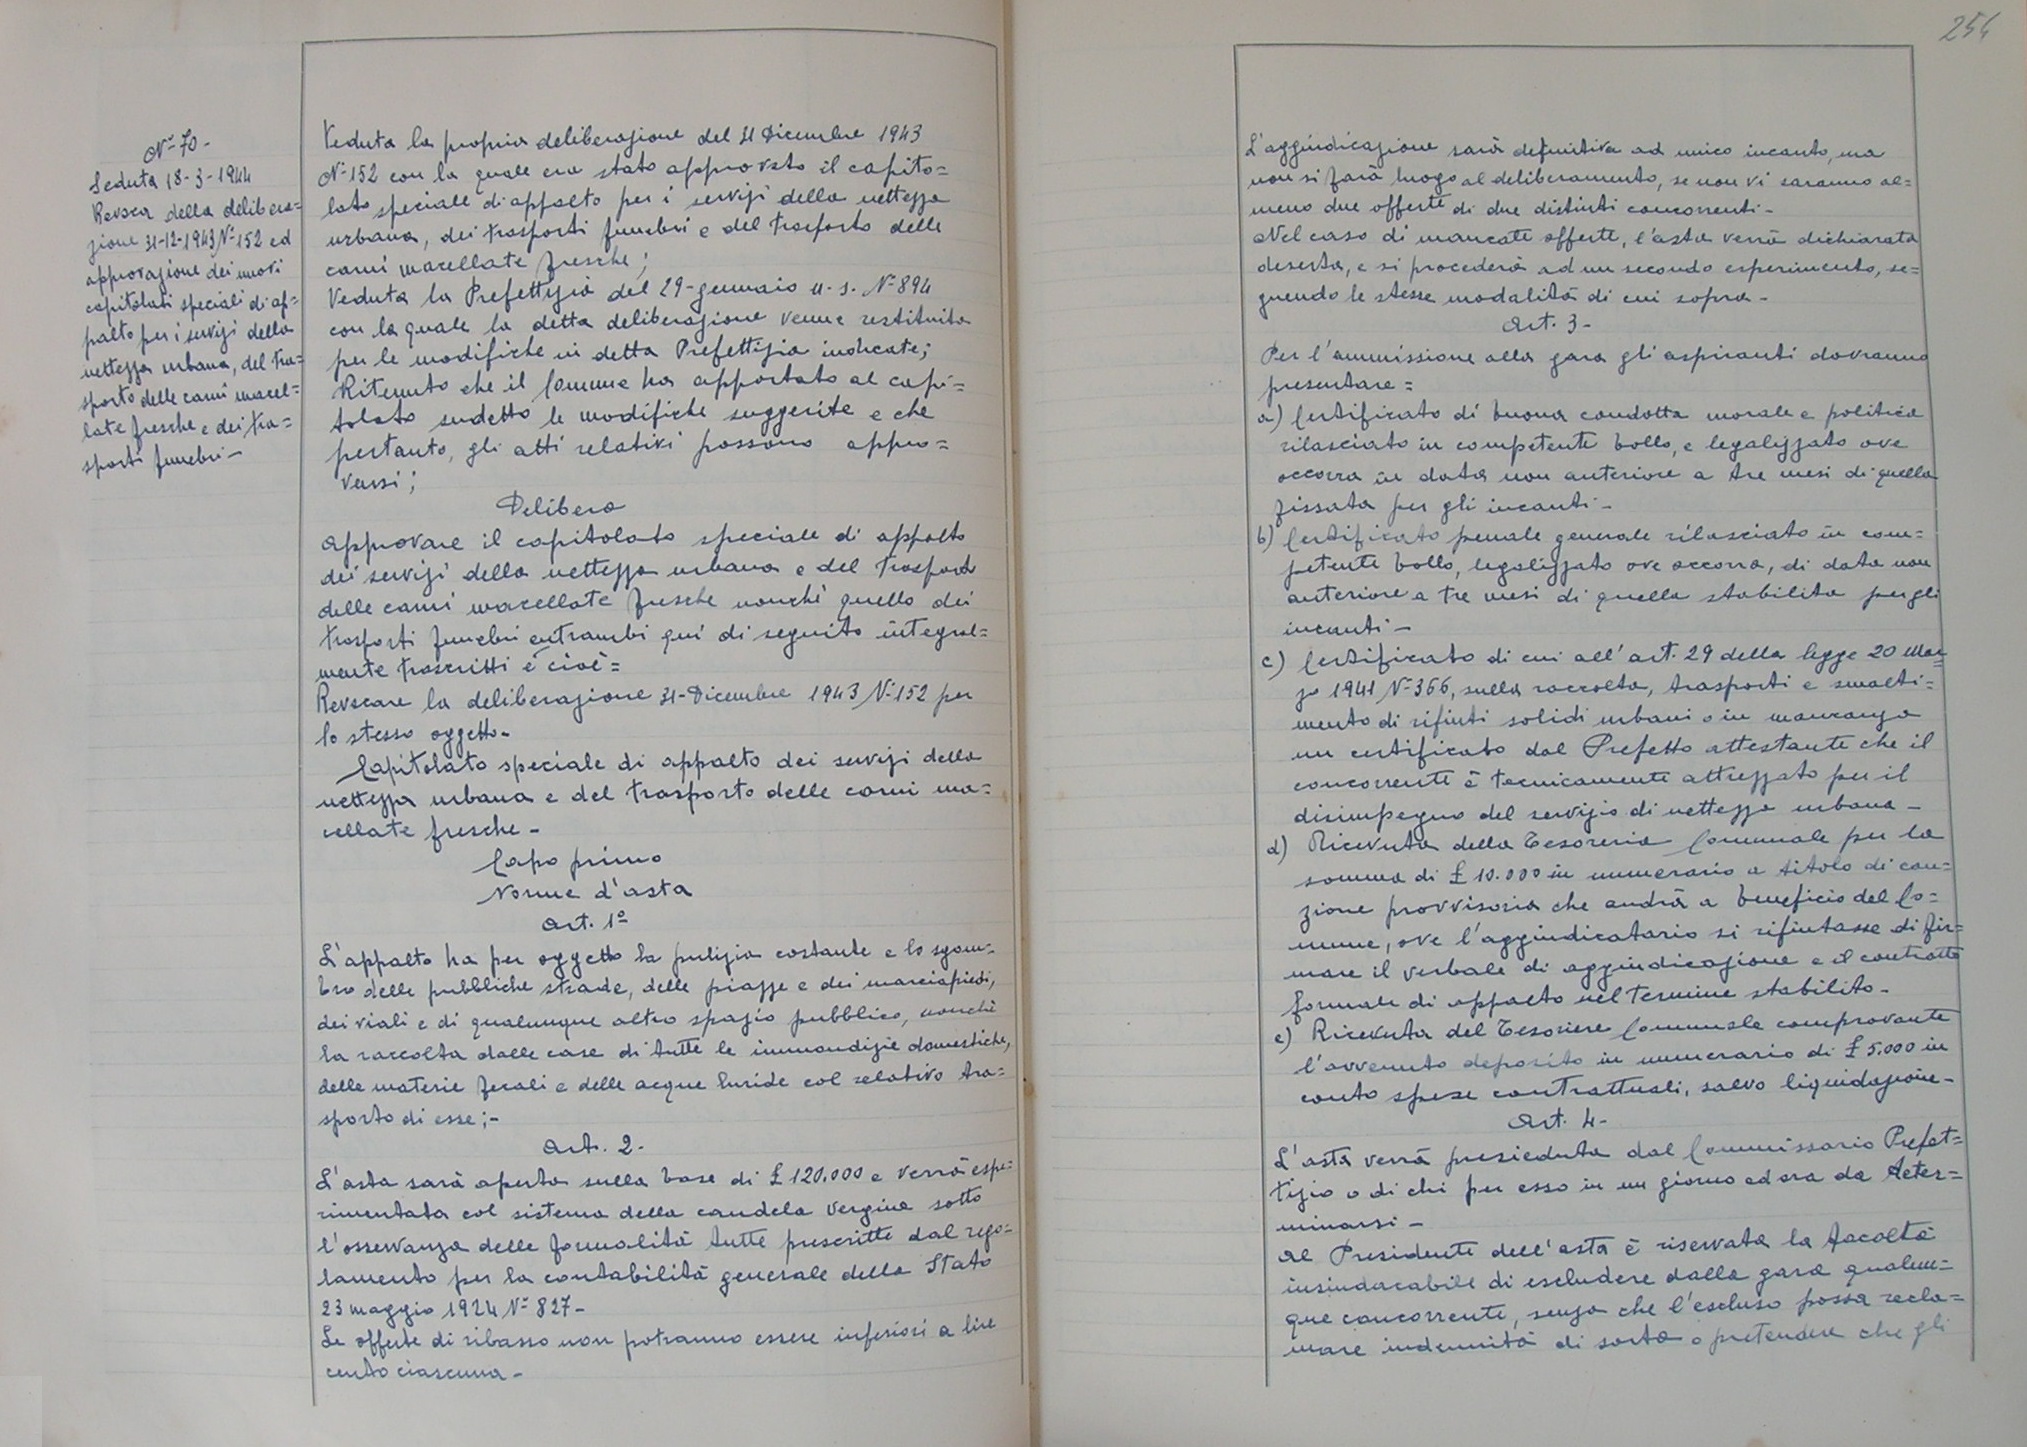 254
Nº 70-
Seduta 18-3-1944
Revoca della delibera=
zione 31-12-1943 Nº 152 ed
approvazione dei nuovi
capitolati speciali di ap=
palto per i servizi della
nettezza urbana, del tra=
sporto delle carni macel=
late fresche e dei tra=
sporti funebri-
Veduta la propria deliberazione del 31 Dicembre 1943
Nº 152 con la quale era stato approvato il capito=
lato speciale di appalto per i servizi della nettezza
urbana, dei trasporti funebri e del trasporto delle
carni macellate fresche;
Veduta la Prefettizia del 29-gennaio u. s. Nº 894
con la quale la detta deliberazione venne restituita
per le modifiche in detta Prefettizia indicate;
Ritenuto che il Comune ha apportato al capi=
tolato sudetto le modifiche suggerite e che
pertanto, gli atti relativi possono appro=
varsi;
Delibera
approvare il capitolato speciale di appalto
dei servizi della nettezza urbana e del trasporto
delle carni macellate fresche nonchè quello dei
trasporti funebri entrambi qui di seguito integral=
mente trascritti e cioè=
Revocare la deliberazione 31-Dicembre 1943 Nº 152 per
lo stesso oggetto-
Capitolato speciale di appalto dei servizi della
nettezza urbana e del trasporto delle carni ma=
cellate fresche-
Capo primo
Norme d'asta
Art. 1º
L'appalto ha per oggetto la pulizia costante e lo sgom-
bro delle pubbliche strade, delle piazze e dei marciapiedi,
dei viali e di qualunque altro spazio pubblico, nonchè
la raccolta dalle case di tutte le immondizie domestiche,
delle materie fecali e delle acque luride col relativo tra=
sporto di esse;-
Art. 2-
L'asta sarà aperta sulla base di £ 120.000 e verrà espe=
rimentata col sistema della candela vergine sotto
l'osservanza delle formalità tutte prescritte dal rego=
lamento per la contabilità generale dello Stato
23 maggio 1924 Nº 827-
Le offerte di ribasso non potranno essere inferiori a lire
cento ciascuna-
L'aggiudicazione sarà definitiva ad unico incanto, ma
non si farà luogo al deliberamento, se non vi saranno al=
meno due offerte di due distinti concorrenti-
Nel caso di mancate offerte, l'asta verrà dichiarata
deserta, e si procederà ad un secondo esperimento, se=
guendo le stesse modalità di cui sopra-
Art. 3-
Per l'ammissione alla gara gli aspiranti dovranno
presentare=
a) Certificato di buona condotta morale e politica
rilasciato in competente bollo, e legalizzato ove
occorra in data non anteriore a tre mesi di quella
fissata per gli incanti-
b) Certificato penale generale rilasciato in com=
petente bollo, legalizzato ove occorra, di data non
anteriore a tre mesi di quella stabilita per gli
incanti-
c) Certificato di cui all'art. 29 della legge 20 Mar=
zo 1941 Nº 366, sulla raccolta, trasporti e smalti=
mento di rifiuti solidi urbani o in mancanza
un certificato dal Prefetto attestante che il
concorrente è tecnicamente attrezzato per il
disimpegno del servizio di nettezza urbana-
d) Ricevuta della Tesoreria Comunale per la
somma di £ 10.000 in numerario a titolo di cau=
zione provvisoria che andrà a beneficio del Co=
mune, ove l'aggiudicatario si rifiutasse di fir=
mare il verbale di aggiudicazione e il contratto
formale di appalto nel termine stabilito-
e) Ricevuta del Tesoriere Comunale comprovante
l'avvenuto deposito in numerario di £ 5.000 in
conto spese contrattuali, salvo liquidazione-
Art. 4-
L'asta verrà presieduta dal Commissario Prefet=
tizio o di chi per esso in un giorno ed ora da deter=
minarsi-
Al Presidente dell'asta è riservata la facoltà
insindacabile di escludere dalla gara qualun=
que concorrente, senza che l'escluso possa recla=
mare indennità di sorta o pretendere che gli